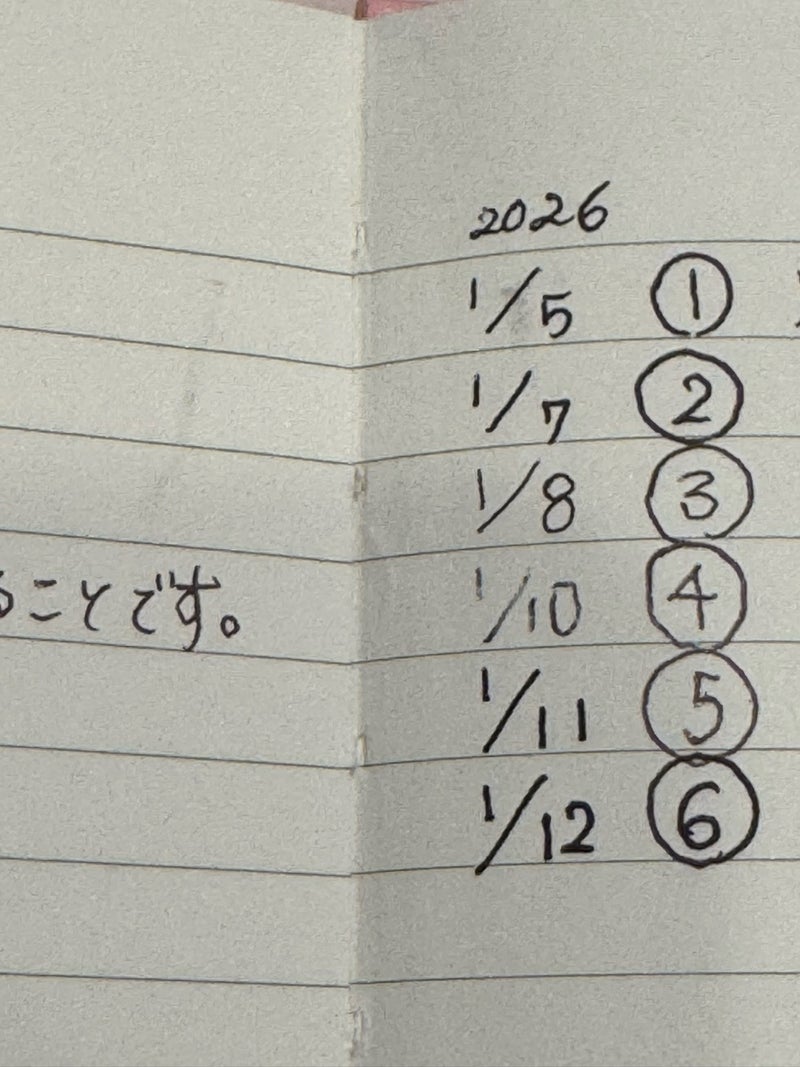 ことです。
2026
1/5 ①
1/7 ②
1/8 ③
1/10 ④
1/11 ⑤
1/12 ⑥